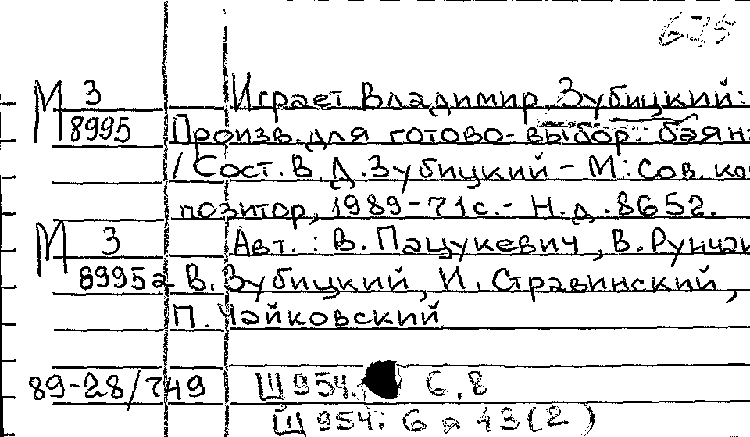 675
М 3 Играет Владимир Зубицкий:
8995 Произв. для готово-выбор. баян
/ Сост. В. Д. Зубицкий - М.: Сов. ком
позитор, 1989 - 71 с. - Н. д. 8652.
М 3 Авт.: В. Пацукевич, В. Рунчак
8995а В. Зубицкий, И. Стравинский,
П. Чайковский
89-28/749 Щ954. 6,8
Щ954.6 я 43(2)